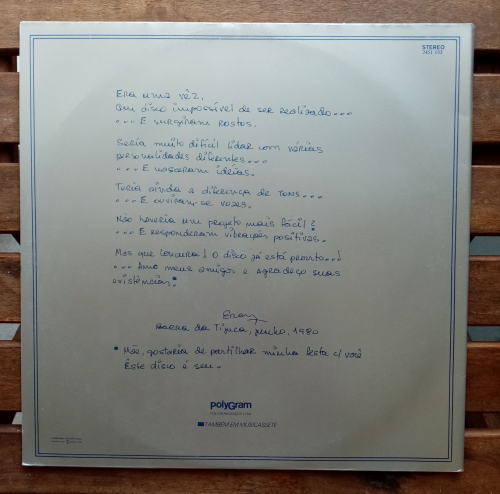 STEREO
2451 152
Era uma vêz,
Um disco impossível de ser realizado...
... E surgiram rostos.
Seria muito difícil lidar com várias
personalidades diferentes...
... E nasceram idéias.
Teria ainda a diferença de TONS...
... E ouviram-se vozes.
Não haveria um projeto mais fácil?
... E responderam vibrações positivas.
Mas que loucura! O disco já está pronto...!
... Amo meus amigos e agradeço suas
existências.*
Erasmo
Barra da Tijuca, junho, 1980
* Mãe, gostaria de partilhar minha festa c/ você
Êste disco é seu.
polyGram
TAMBÉM EM MUSICASSETE